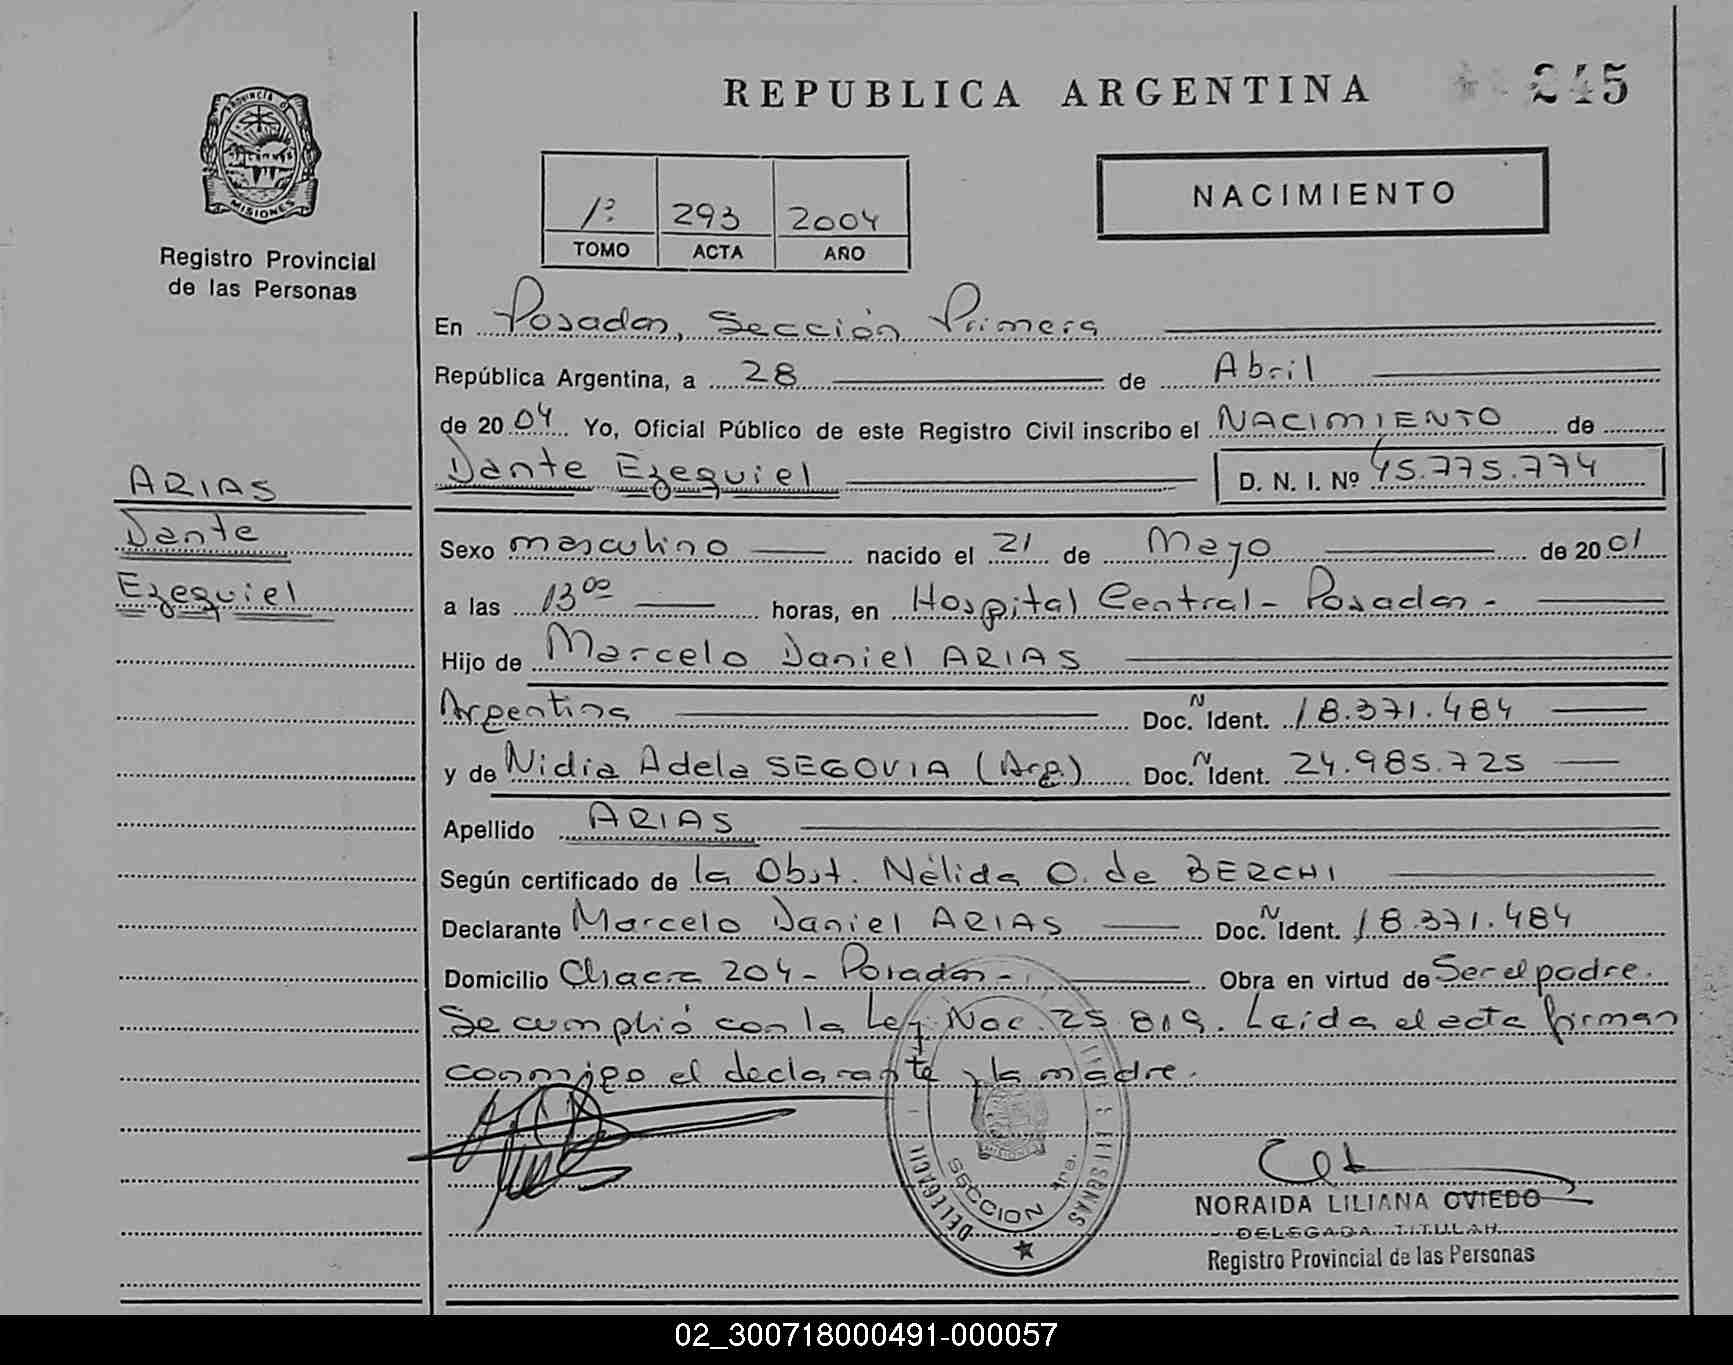 REPUBLICA ARGENTINA 245
PROVINCIA DE
MISIONES
Registro Provincial
de las Personas
NACIMIENTO
1º 293 2004
TOMO ACTA AÑO
En Posadas, Sección Primera
República Argentina, a 28 de Abril
de 2004 Yo, Oficial Público de este Registro Civil inscribo el NACIMIENTO de
Dante Ezequiel D. N. I. Nº 45.775.774
ARIAS
Dante
Ezequiel
Sexo masculino nacido el 21 de Mayo de 2001
a las 13 00 horas, en Hospital Central - Posadas -
Hijo de Marcelo Daniel ARIAS
Argentina Doc. N Ident. 18.371.484
y de Nidia Adela SEGOVIA (Arg.) Doc. N Ident. 24.985.725
Apellido ARIAS
Según certificado de la Obst. Nélida O. de BERCHI
Declarante Marcelo Daniel ARIAS Doc. N Ident. 18.371.484
Domicilio Chacra 204 - Posadas - Obra en virtud de Ser el padre.
Se cumplió con la Ley Nac. 25.819. Leída el acta firman
conmigo el declarante y la madre.
MISIONES
SECCION 1ra.
NORAIDA LILIANA OVIEDO
DELEGADA TITULAR
Registro Provincial de las Personas
02_300718000491-000057